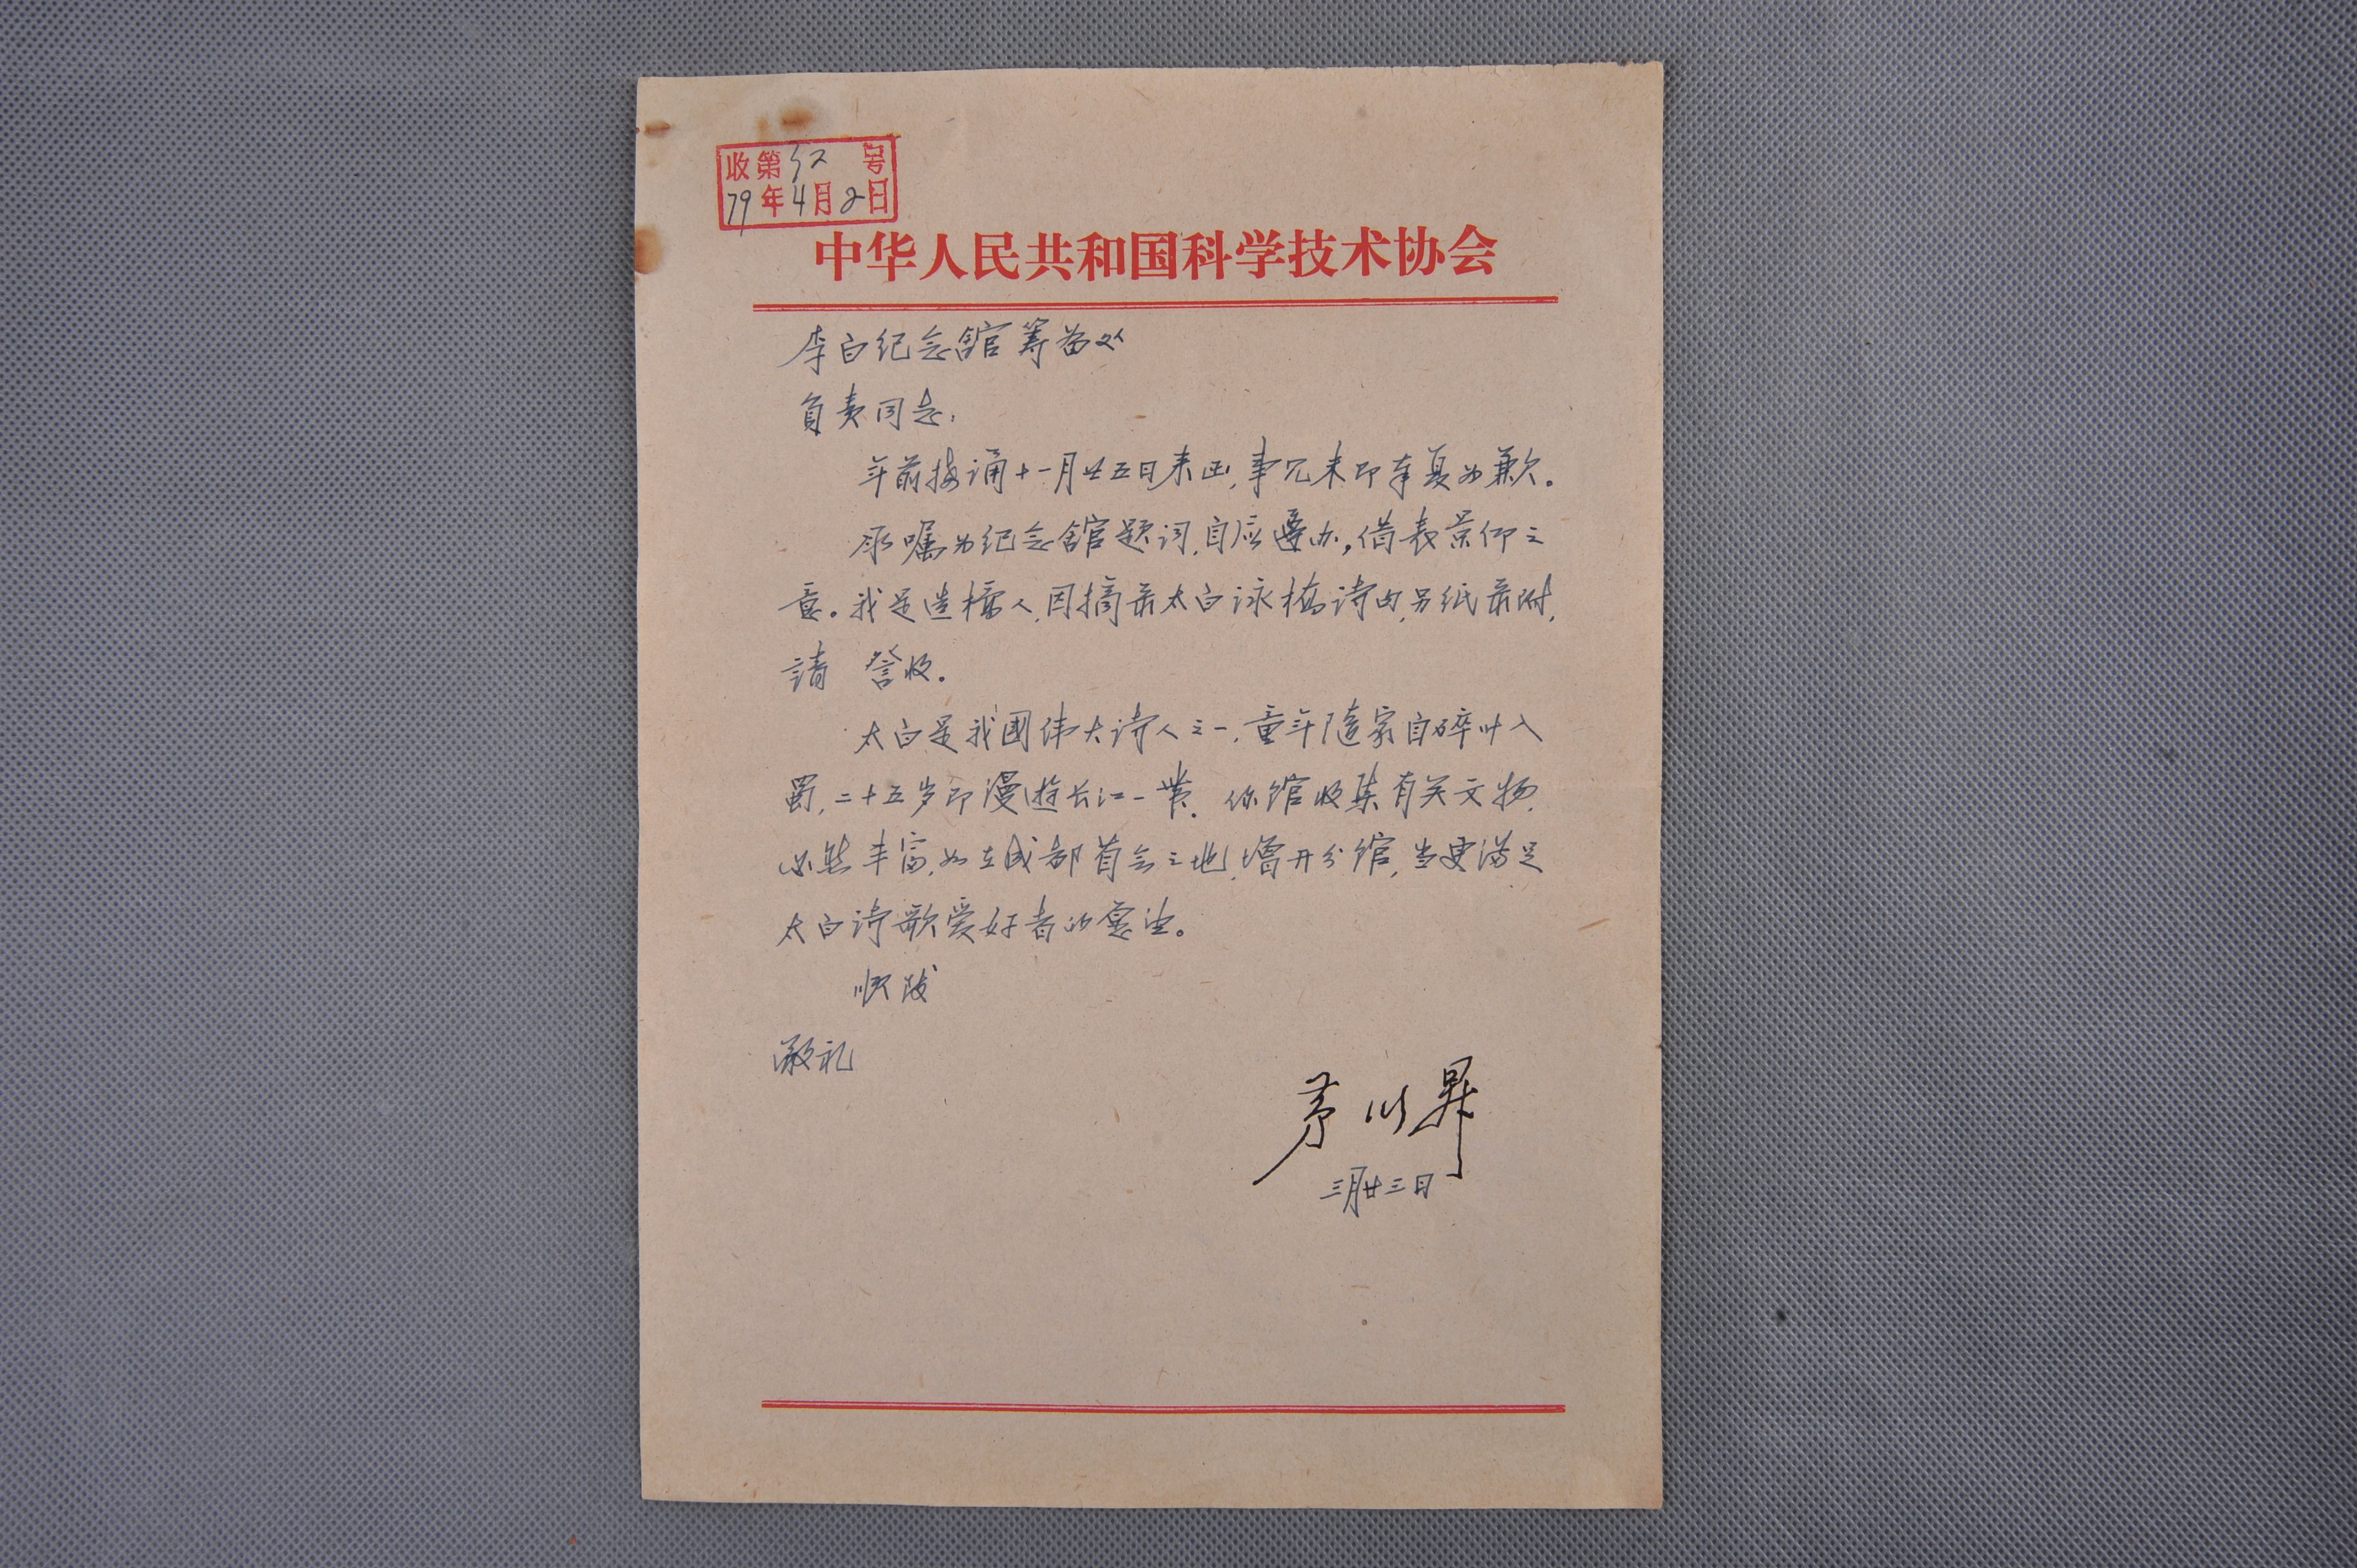 收第52号
79年4月2日
中华人民共和国科学技术协会
李白纪念舘筹备处
负责同志：
年前接诵十一月廿五日来函，事冗未即奉复为歉。
承嘱为纪念舘题词，自应遵办，借表景仰之
意。我是造桥人，因摘录太白咏桥诗句，另纸录附，
請 詧收。
太白是我國伟大诗人之一，童年随家自碎叶入
蜀，二十五岁即漫游长江一带。你馆收集有关文物，
必然丰富，如在成都首会之地，增开分馆，当更满足
太白诗歌爱好者的愿望。
顺致
敬礼
茅以昇
三月廿三日